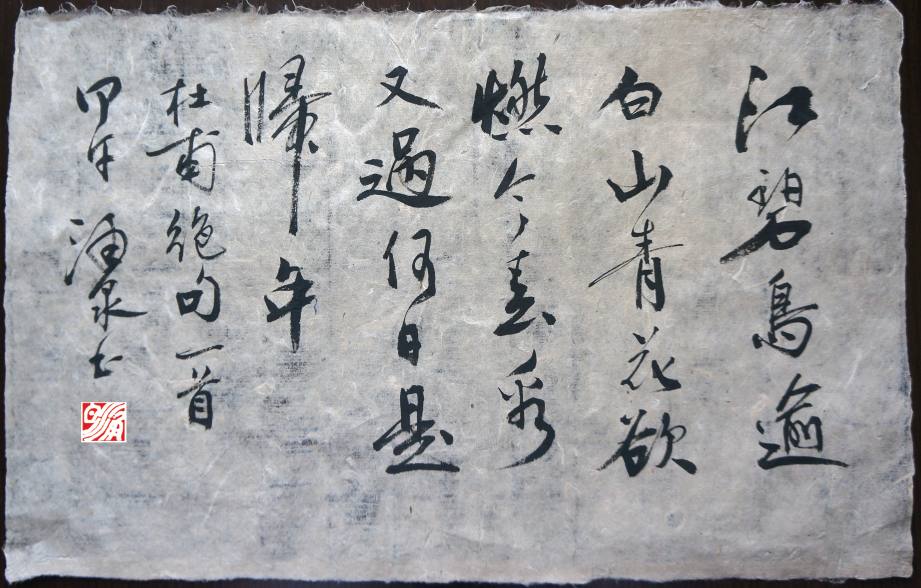 江碧鳥逾
白山青花欲
燃今春看
又過何日是
歸年
杜甫絕句一首
甲午 涌泉书